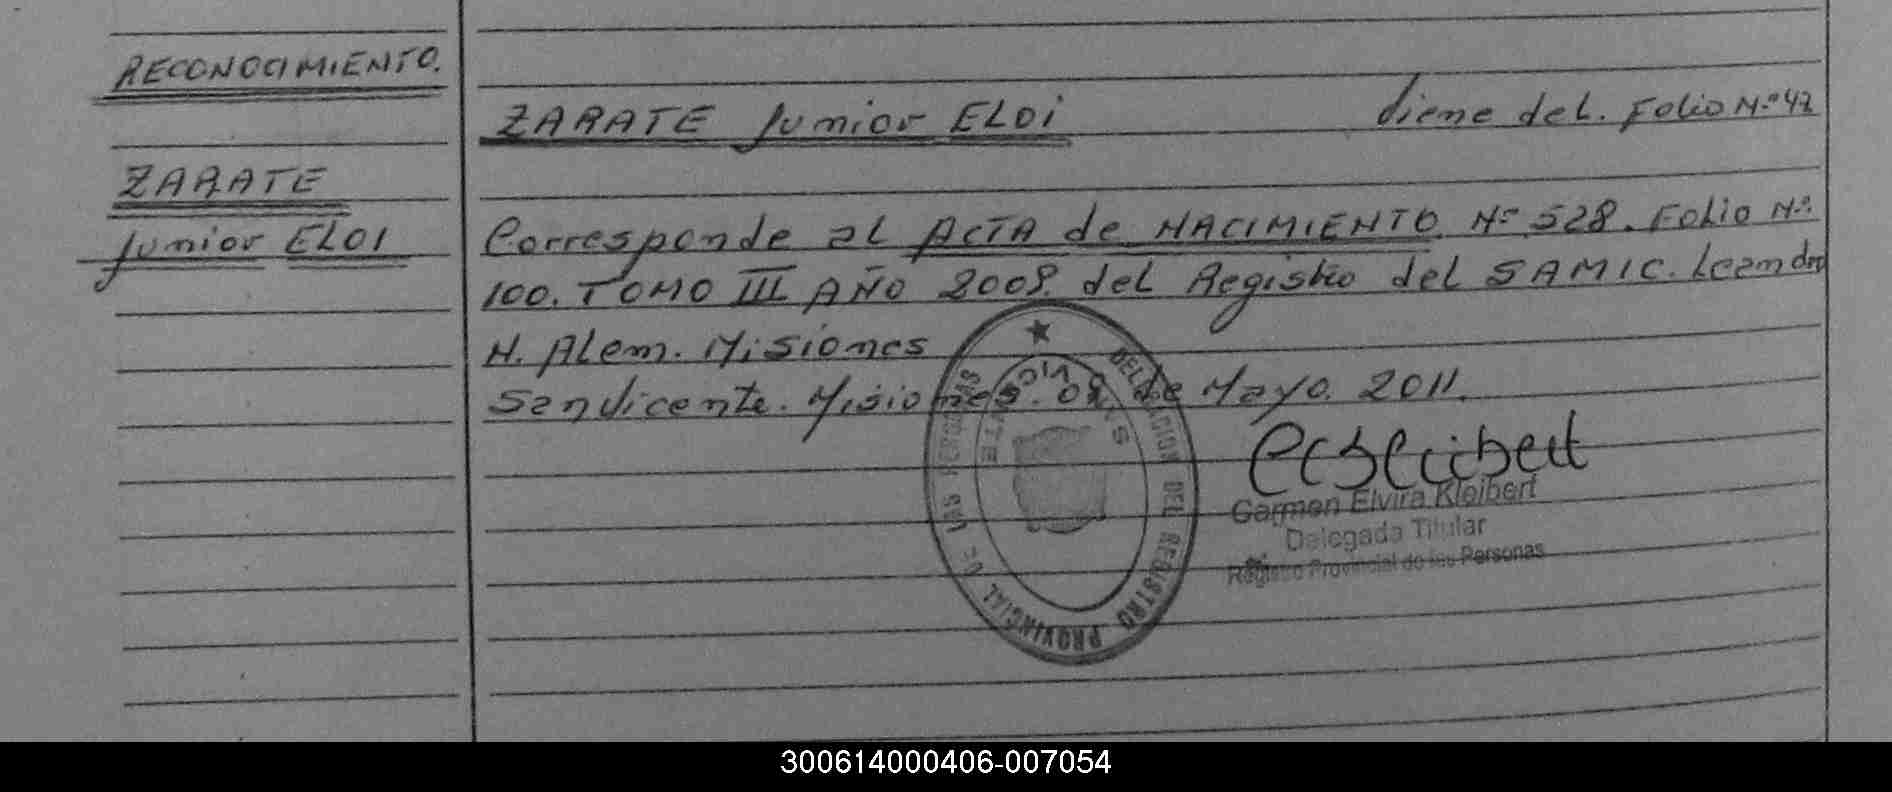 RECONOCIMIENTO.
ZARATE
Junior ELOI
ZARATE Junior ELOI Viene del. Folio Nº 42
Corresponde al ACTA de NACIMIENTO. Nº 528. Folio Nº
100. TOMO III AÑO 2008. del Registro del SAMIC. Leandro
N. Alem. Misiones
San Vicente. Misiones. 09 de Mayo. 2011.
Carmen Elvira Kleibert
Delegada Titular
Registro Provincial de las Personas
DELEGACION DEL REGISTRO PROVINCIAL DE LAS PERSONAS
SAN VICENTE
300614000406-007054